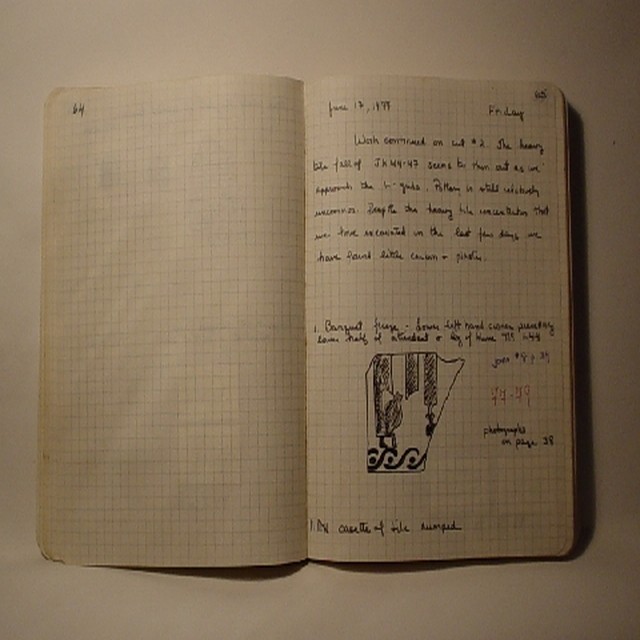 64
65
June 17, 1977 Friday
Work continued on cut #2. The heavy
tile fall of seems to thin out as we
approach the grids. Pottery is still relatively
uncommon. Despite the heavy tile concentration that
we have excavated in the last few days we
have found little carbon or
1. Banquet frieze - Lower left hand corner preserving
lower half of attendant & leg of
joins p.
77-79
photographs
on page 28
casette of tile dumped